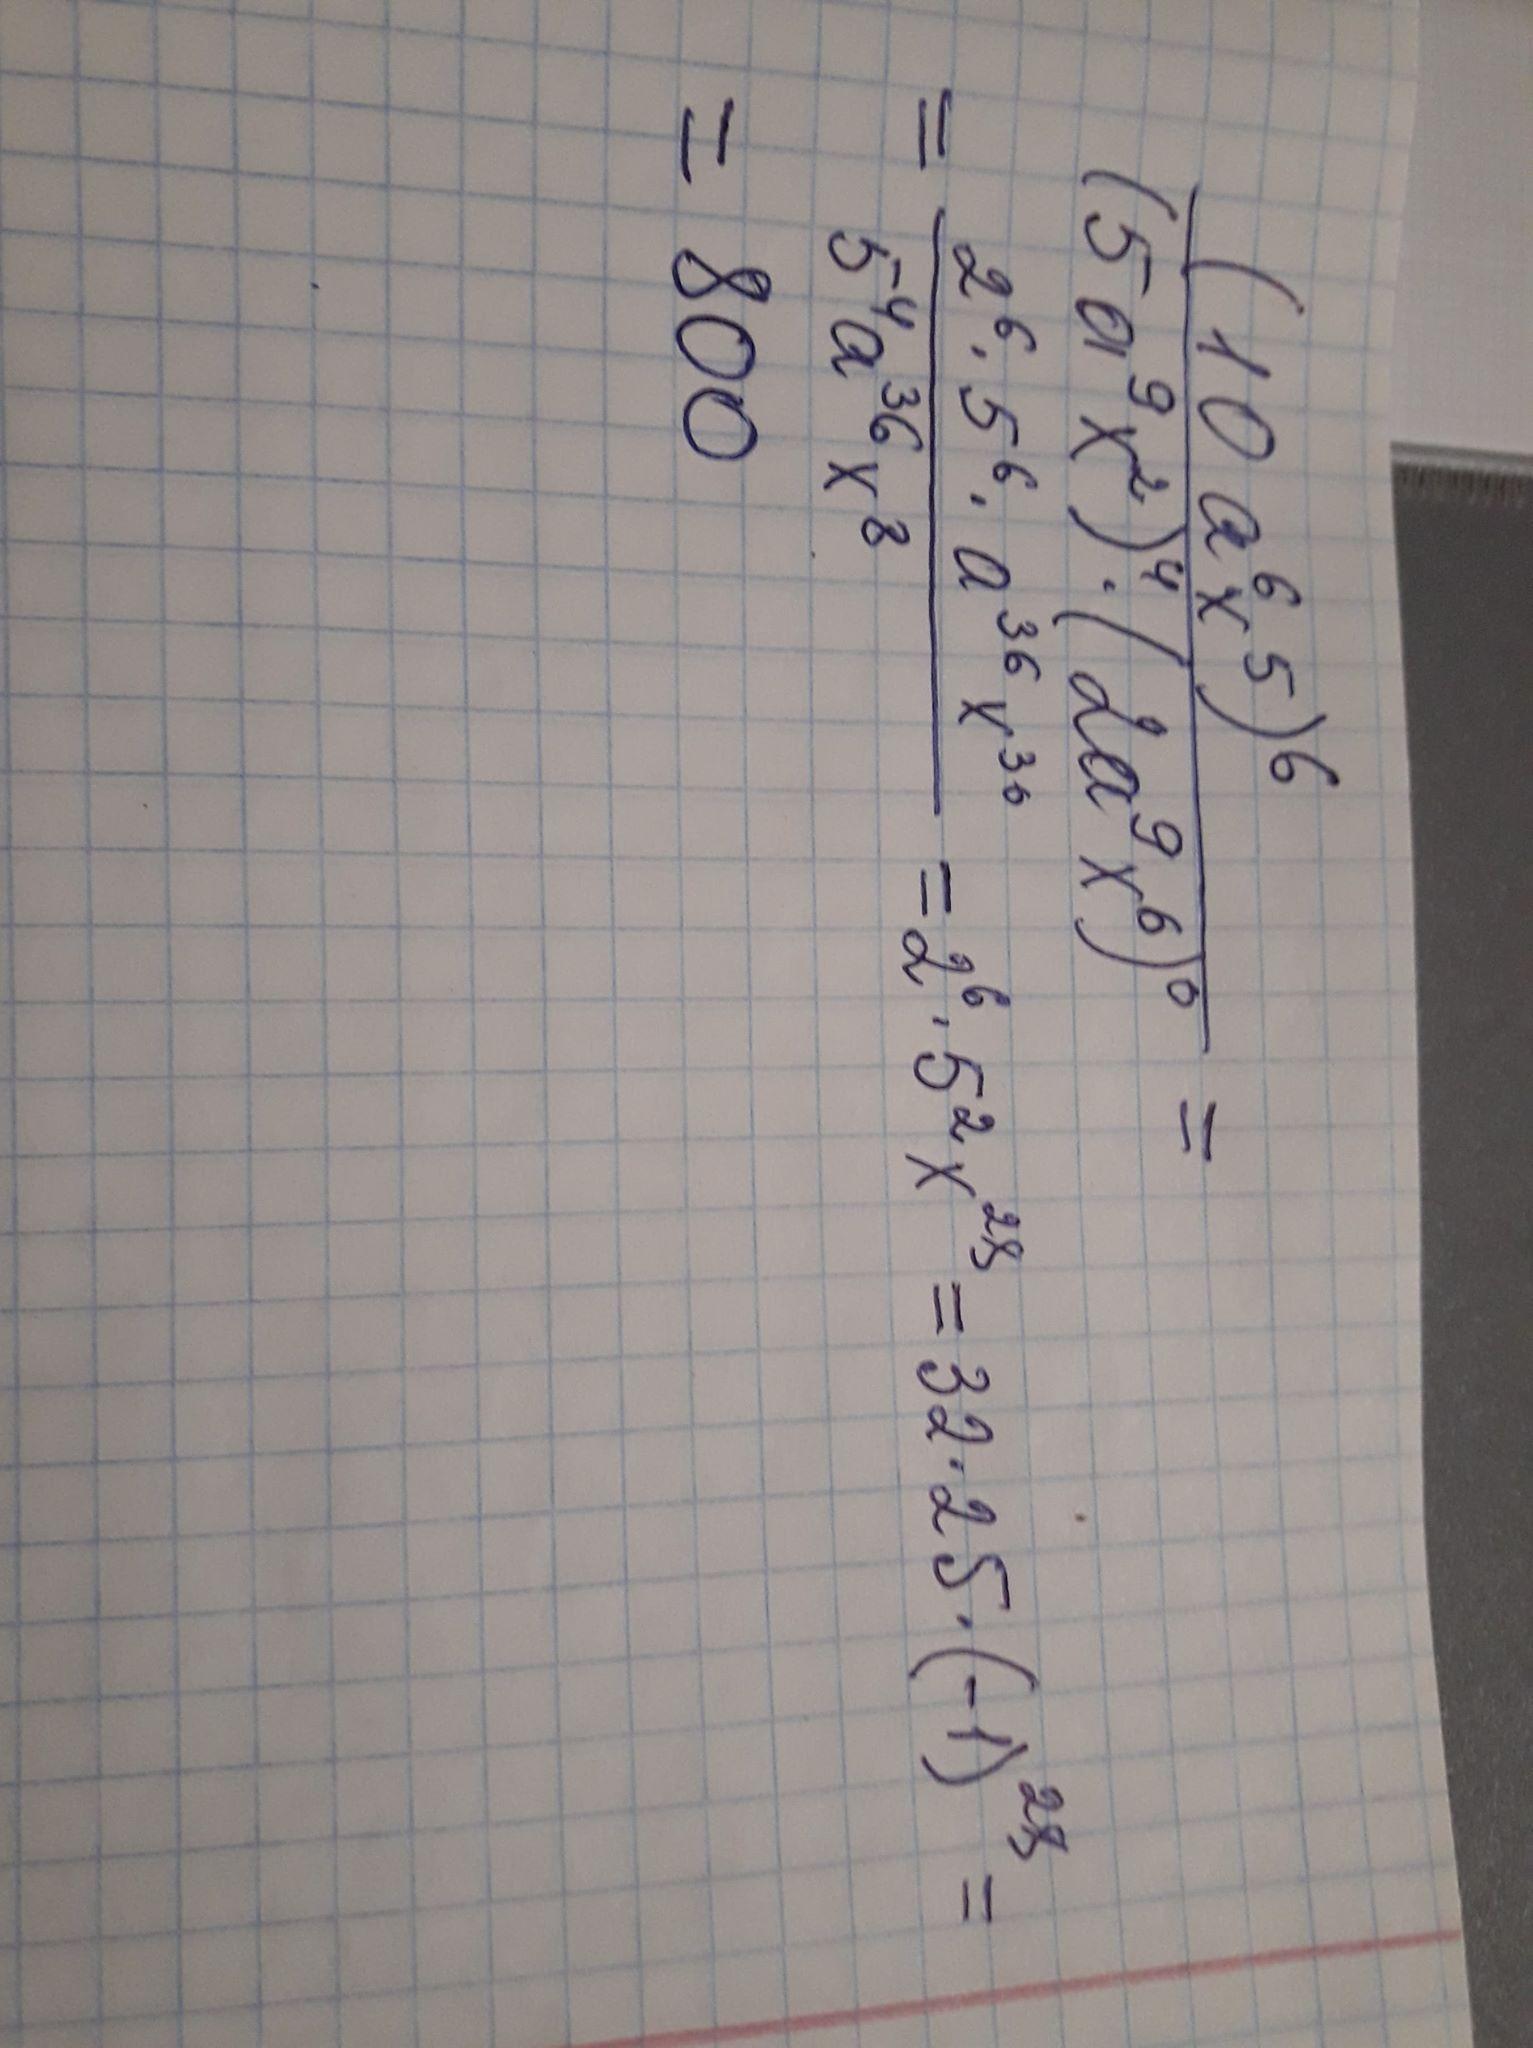 (10a⁶x⁵)⁶
(5a⁹x²)⁴·(2a⁹x⁶)⁰ =
= 2⁶·5⁶·a³⁶x³⁰
5⁴a³⁶x⁸
= 2⁶·5²x²⁸ = 32·25·(-1)²⁸ =
= 800